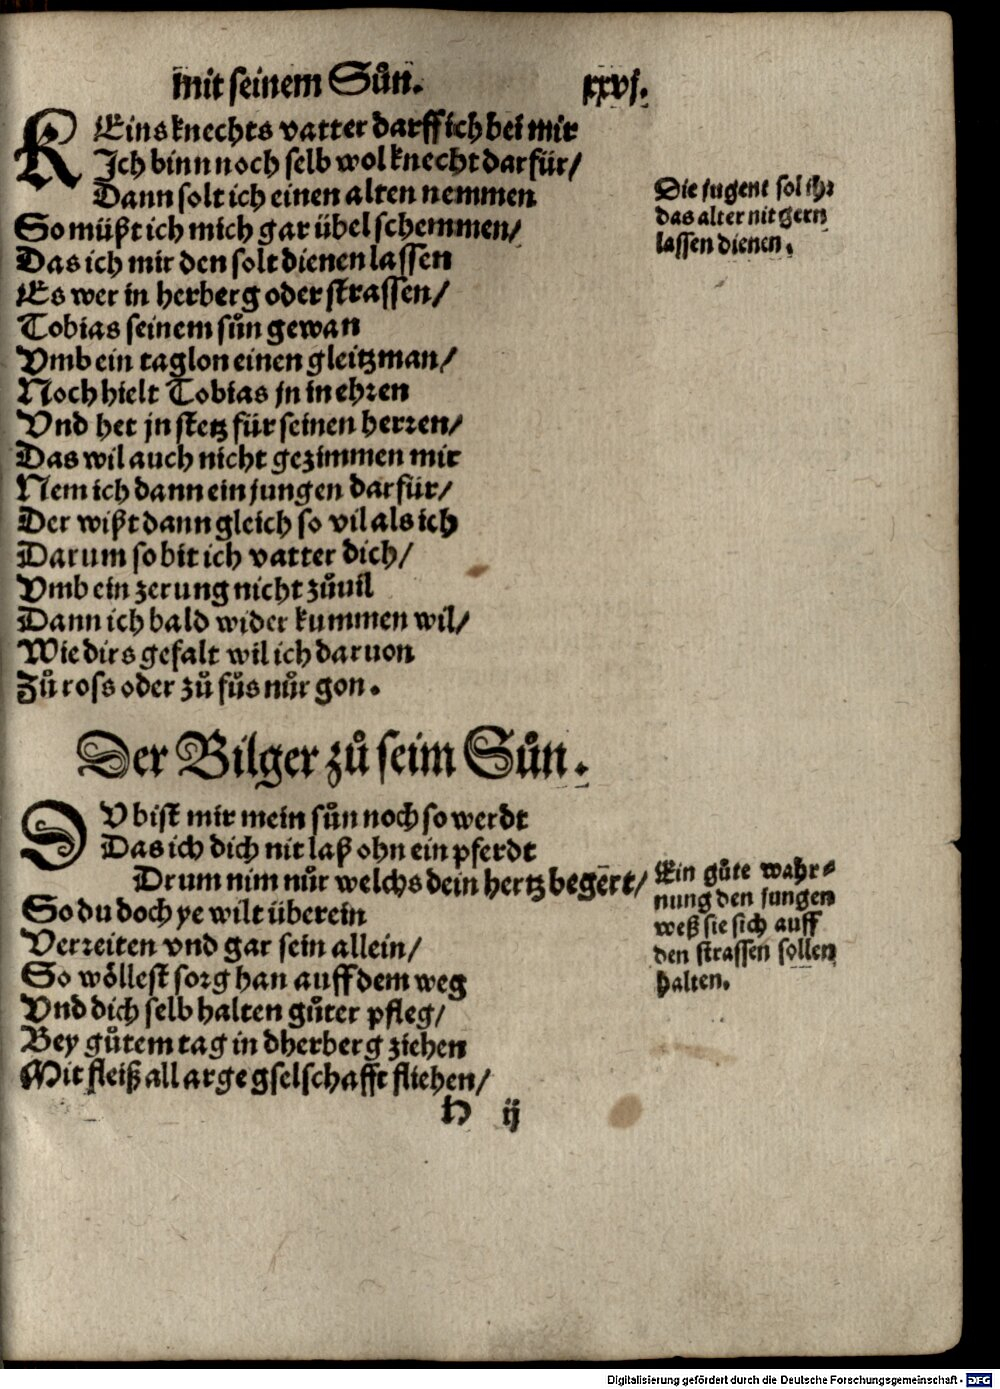 mit seinem Suͦn. xxvj.
KEins knechts vatter darff ich bei mir
Ich binn noch selb wol knecht darfür/
Dann solt ich einen alten nemmen
So müßt ich mich gar übel schemmen/
Das ich mir den solt dienen lassen
Es wer in herberg oder strassen/
Tobias seinem suͦn gewan
Vmb ein taglon einen gleitzman/
Noch hielt Tobias jn in ehren
Vnd het jn stetz für seinen herren/
Das wil auch nicht gezimmen mir
Nem ich dann ein jungen darfür/
Der wißt dann gleich so vil als ich
Darum so bit ich vatter dich/
Vmb ein zerung nicht zuͦuil
Dann ich bald wider kummen wil/
Wie dirs gefalt wil ich daruon
Zuͦ ross oder zuͦ fuͦs nuͦr gon.
Die jugent sol jhr
das alter nit gern
lassen dienen.
Der Bilger zuͦ seim Suͦn.
DV bist mir mein suͦn noch so werdt
Das ich dich nit laß ohn ein pferdt
Drum nim nuͦr welchs dein hertz begert/
So du doch ye wilt überein
Verreiten vnd gar sein allein/
So wöllest sorg han auff dem weg
Vnd dich selb halten guͦter pfleg/
Bey guͦtem tag in dherberg ziehen
Mit fleiß all arge gselschafft fliehen/
Ein guͦte wahr⸗
nung den jungen
weß sie sich auff
den strassen sollen
halten.
H ij
Digitalisierung gefördert durch die Deutsche Forschungsgemeinschaft - DFG